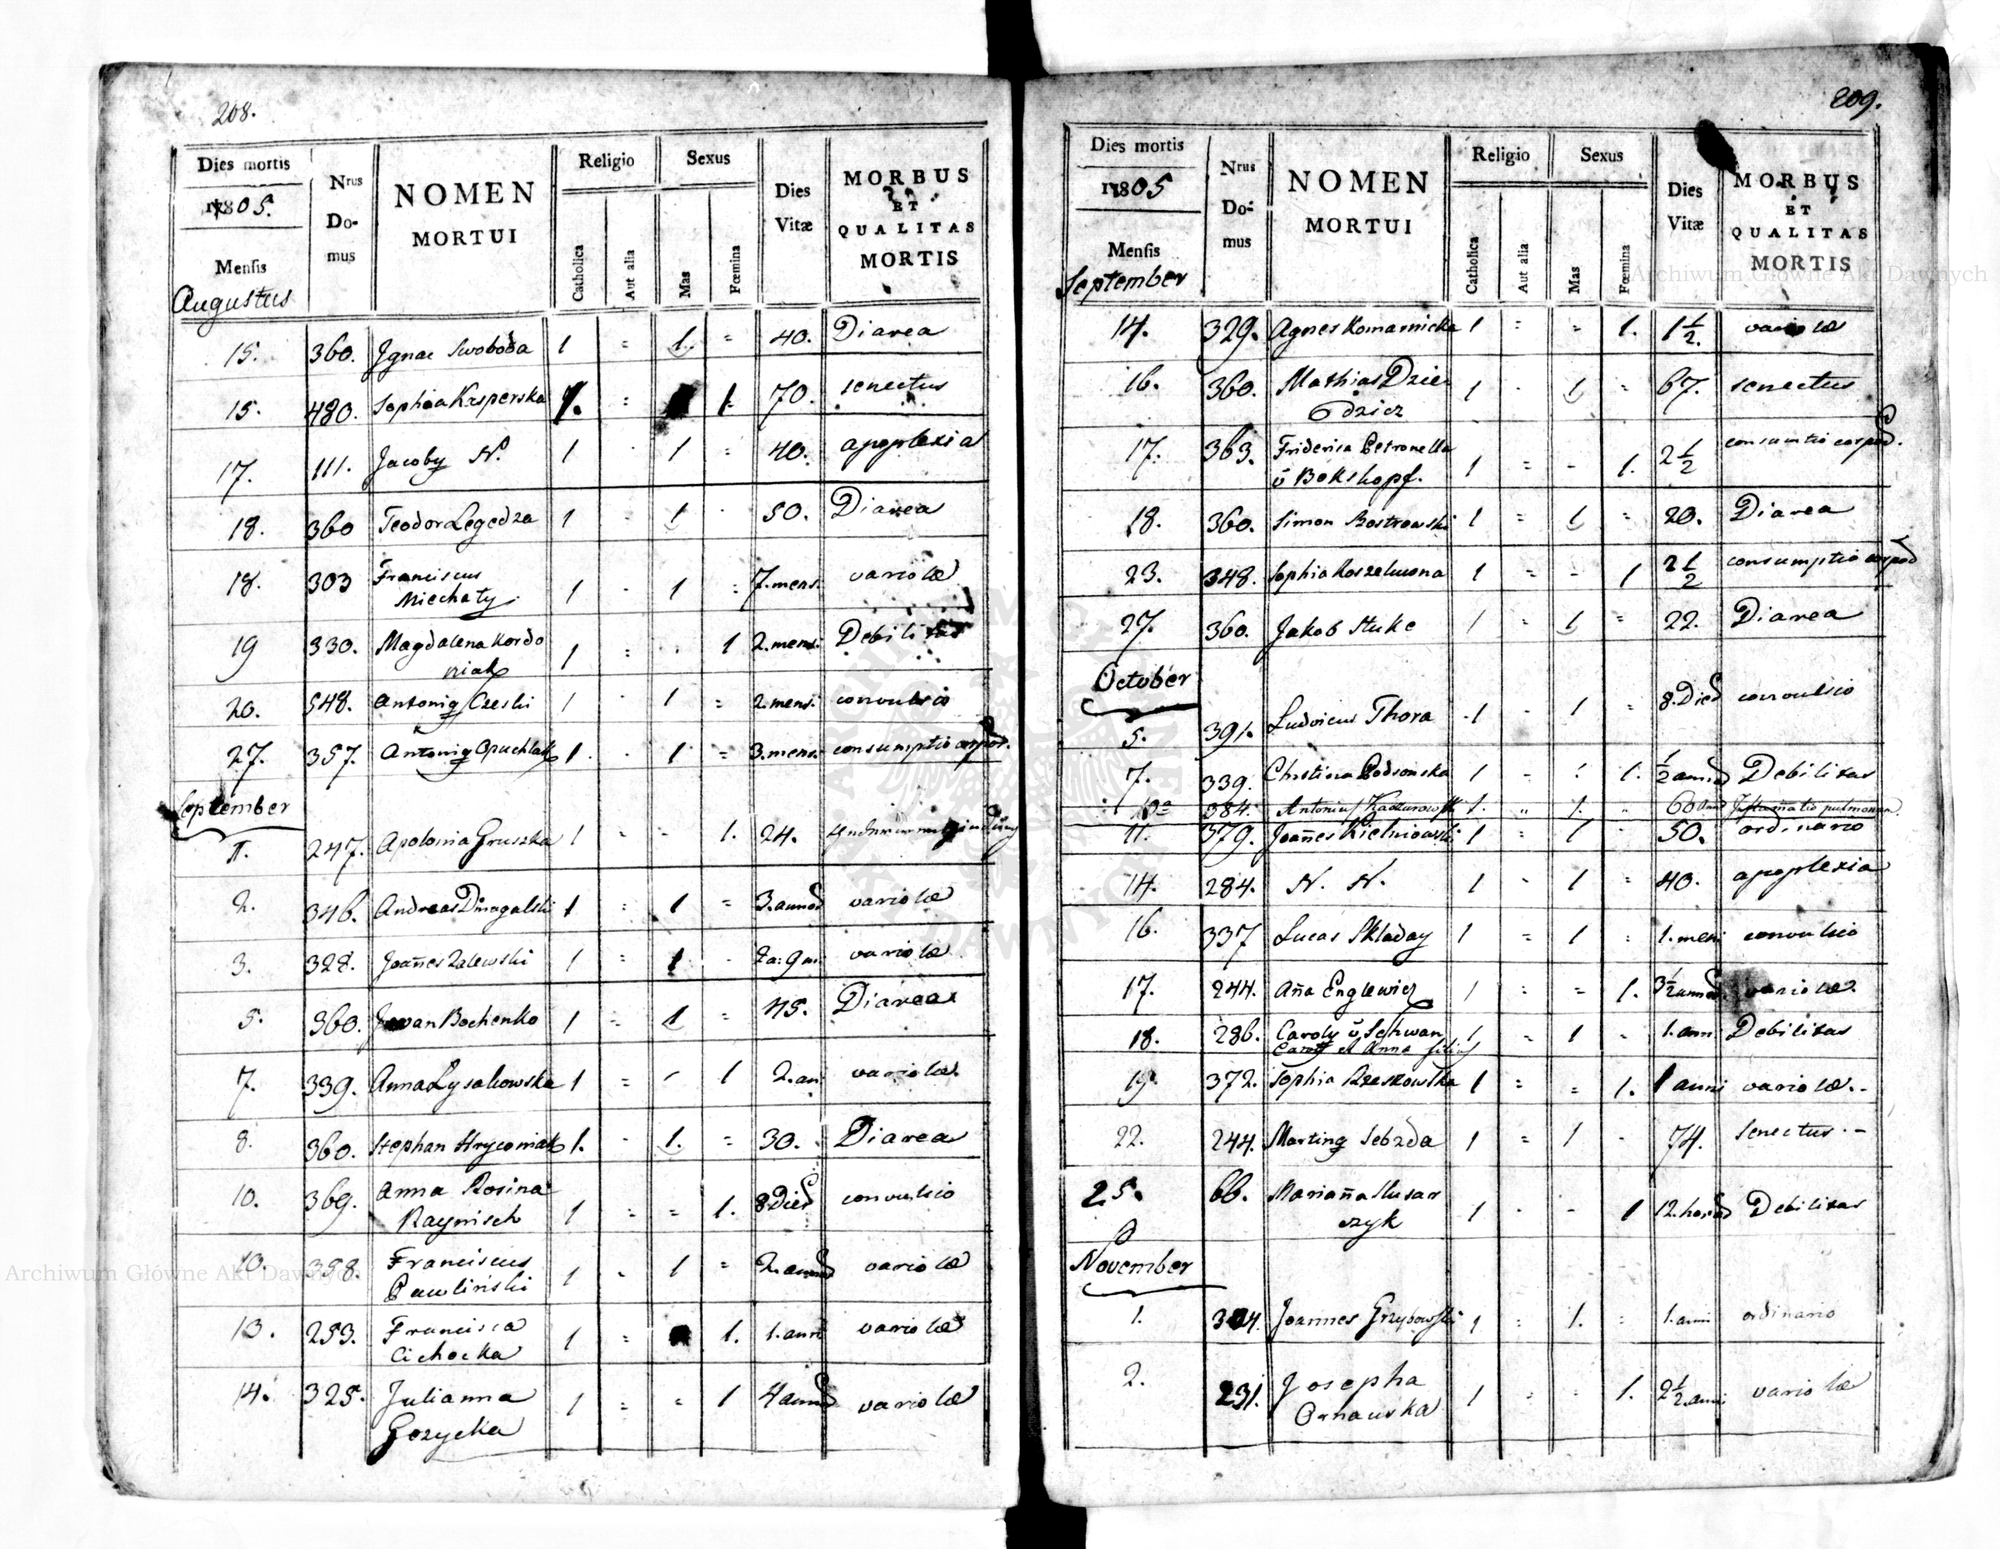 208.
Dies mortis
1805.
Mensis
Augustus
Nrus
Do-
mus
NOMEN
MORTUI
Religio
Catholica
Aut alia
Sexus
Mas
Fœmina
Dies
Vitæ
MORBUS
ET
QUALITAS
MORTIS
15. 360. Ignac Swoboda 1 = 1. = 40. Diarea
15. 480. Sophia Kasperska 1. = 1. 70. senectus
17. 111. Jacoby N. 1 - 1 = 40. apoplexia
18. 360 Teodor Legedza 1 - 1 - 50. Diarea
18. 303 Franciscus
Niechaty 1 - 1 = 7. mens. variolæ
19 330. Magdalena Kordo
niak 1 = - 1 2. mens. Debilitas
20. 548. Antonig Czeski 1 - 1 = 2. mens. convulsio
27. 357. Antonig Opuchlak 1 - 1 = 3. mens. consumptio corpor.
September
1. 247. Apolonia Gruszka 1 - - 1. 24.
2. 346. Andreas Dmogalski 1 = 1 = 3. annos variolæ
3. 328. Joañes Zalewski 1 = 1 - 2 a: 9 m. variolæ
5. 360. Iwan Bochenko 1 = 1 = 45. Diarea
7. 339. Anna Lysakowska 1 = - 1 2. an. variolæ
8. 360. Stephan Hrycaniak 1. - 1. = 30. Diarea
10. 369. Anna Rosina
Raynisch 1 = = 1. 8 Dies convulsio
10. 358. Franciscus
Pawlinski 1 - 1 = 2. annos variolæ
13. 253. Francisca
Cichocka 1 = 1. 1. anni variolæ
14. 325. Julianna
Gozycka 1 = = 1 4 annos variolæ
209.
Dies mortis
1805
Mensis
September
Nrus
Do-
mus
NOMEN
MORTUI
Religio
Catholica
Aut alia
Sexus
Mas
Fœmina
Dies
Vitæ
MORBUS
ET
QUALITAS
MORTIS
14. 329. Agnes Komarnicka 1 = = 1. 1 1/2. variolæ
16. 360. Mathias Dzie
dzicz 1 - 1 = 67. senectus
17. 363. Friderica Petronella
v̄ Bokshopf. 1 = - 1. 2 1/2 consumtio corpor.
18. 360. Simon Bostrowski 1 = 1 = 20. Diarea
23. 348. Sophia Koszelwona 1 = - 1 2 1/2 consumptio corpor
27. 360. Jakob Huke 1 - 1 = 22. Diarea
October
5. 391. Ludvicus Thora 1 - 1 = 8. Dies convulsio
7. 339. Christina Podsonska 1 - 1. 1/2 annos Debilitas
10a 384. Antonius Kaczurowski 1. " 1. " 60 Inflamatio pulmonum
11. 379. Joañes Kielniowski 1 = 1 - 50. ordinario
14. 284. N. N. 1 - 1 = 40. apoplexia
16. 337 Lucas Skladay 1 = 1 = 1. mens convulsio
17. 244. Aña Englewicz 1 = = 1. 3 1/2 annos variolæ
18. 286. Caroly v̄ Schwan
Caroly et Anna filius 1 = 1 - 1. ann Debilitas
19. 372. Sophia Rzeszowska 1 = = 1. 1 anni variolæ. -
22. 244. Marting Sebzda 1 = 1 - 74. Senectus. -
25. 66. Mariaña Slusar
szyk 1 - - 1 12. horas Debilitas
November
1. 304. Joannes Grzybowski 1 = 1. = 1. anni ordinario
2. 231. Josepha
Ornawska 1 = = 1. 2 1/2. anni variolæ
Archiwum Główne Akt Dawnych
Archiwum Główne Akt Dawnych